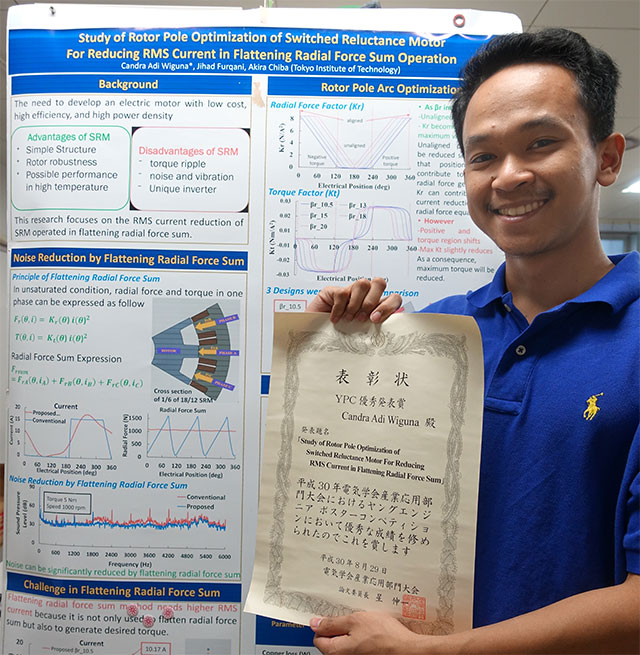 Study of Rotor Pole Optimization of Switched Reluctance Motor
For Reducing RMS Current in Flattening Radial Force Sum Operation
Candra Adi Wiguna*, Jihad Furqani, Akira Chiba (Tokyo Institute of Technology)
Background
The need to develop an electric motor with low cost,
high efficiency, and high power density
Advantages of SRM
• Simple Structure
• Rotor robustness
• Possible performance
in high temperature
Disadvantages of SRM
• torque ripple
• noise and vibration
• Unique inverter
This research focuses on the RMS current reduction of
SRM operated in flattening radial force sum.
Noise Reduction by Flattening Radial Force Sum
Principle of Flattening Radial Force Sum
In unsaturated condition, radial force and torque in one
phase can be expressed as follow
Fr(θ,i) = Kr(θ) i(θ)²
T(θ,i) = Kt(θ) i(θ)²
Radial Force Sum Expression
Frsum
= FrA(θ,iA) + FrB(θ,iB) + FrC(θ,iC)
MOTOR
PHASE A
Cross section
of 1/6 of 18/12 SRM
Current
Proposed
Conventional
Current (A)
20
15
10
5
0
0 60 120 180 240 300 360
Electrical Position (deg)
Radial Force Sum
Radial Force (N)
1500
1000
500
0
0 60 120 180 240 300 360
Electrical Position (deg)
Noise Reduction by Flattening Radial Force Sum
Torque 5 Nm
Speed 1000 rpm
Conventional
Proposed
Sound Pressure
Level (dB)
90
60
30
0
0 600 1200 1800 2400 3000 3600 4200 4800 5400 6000
Frequency (Hz)
Noise can be significantly reduced by flattening radial force sum
Challenge in Flattening Radial Force Sum
Flattening radial force sum method needs higher RMS
current because it is not only used to flatten radial force
sum but also to generate desired torque.
Current
Proposed βr_10.5
10.17 A
20
Rotor Pole Arc Optimization
Radial Force Factor (Kr)
Kr (N/A²)
8
6
4
2
0
aligned
unaligned
Negative
torque
Positive
torque
0 60 120 180 240 300 360
Electrical Position (deg)
Torque Factor (Kt)
βr_10.5
βr_13
βr_15
βr_18
βr_20
Kt (Nm/A²)
0.03
0.02
0.01
0
-0.01
-0.02
-0.03
0 60 120 180 240 300 360
Electrical Position (deg)
3 Designs were
comparison
βr_10.5
• As βr in
-Unaligned
- Kr becom
maximum
Unaligned
be reduced s
that positi
contribute to
radial force g
Kr can contrib
current reduct
radial force equ
• However
-Positive and
torque region shifts
-Max Kt slightly reduces
As a consequence,
maximum torque will be
reduced.
Parameter
Copper loss (W)
表彰状
YPC優秀発表賞
Candra Adi Wiguna 殿
発表題名
「Study of Rotor Pole Optimization of
Switched Reluctance Motor For Reducing
RMS Current in Flattening Radial Force Sum」
平成30年電気学会産業応用部
門大会におけるヤングエンジ
ニア ポスターコンペティショ
ンにおいて優秀な成績を修め
られたのでこれを賞します
平成30年8月29日
電気学会産業応用部門大会
論文委員長 星 伸一